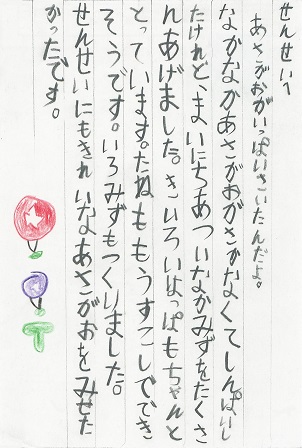 せんせいへ
あさがおがいっぱいさいたんだよ。
なかなかあさがおがさかなくてしんぱいし
たけれど、まいにちあついなかみずをたくさ
んあげました。きいろいはっぱもちゃんと
とっています。たねももうすこしでてき
そうです。いろみずもつくりました。
せんせいにもきれいなあさがおをみせた
かったです。